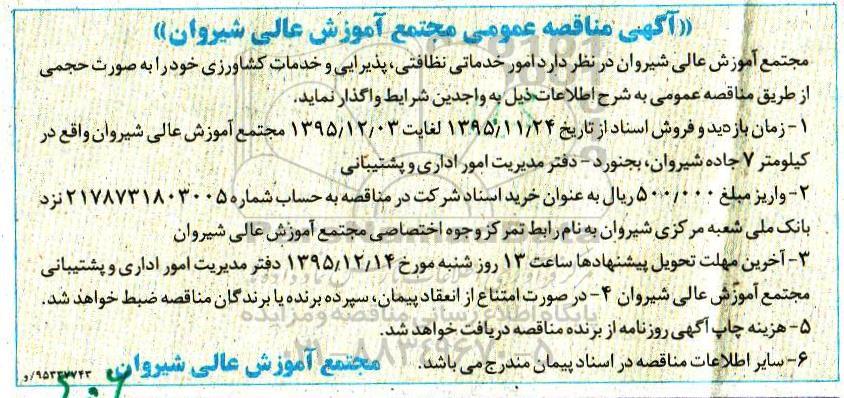 «آگهی مناقصه عمومی مجتمع آموزش عالی شیروان»
مجتمع آموزش عالی شیروان در نظر دارد امور خدماتی نظافتی، پذیرایی و خدمات کشاورزی خود را به صورت حجمی
از طریق مناقصه عمومی به شرح اطلاعات ذیل به واجدین شرایط واگذار نماید.
۱- زمان بازدید و فروش اسناد از تاریخ ۱۳۹۵/۱۱/۲۴ لغایت ۱۳۹۵/۱۲/۰۳ مجتمع آموزش عالی شیروان واقع در
کیلومتر ۷ جاده شیروان، بجنورد - دفتر مدیریت امور اداری و پشتیبانی
۲- واریز مبلغ ۵۰۰/۰۰۰ ریال به عنوان خرید اسناد شرکت در مناقصه به حساب شماره ۲۱۷۸۷۳۱۸۰۳۰۰۵ نزد
بانک ملی شعبه مرکزی شیروان به نام رابط تمرکز وجوه اختصاصی مجتمع آموزش عالی شیروان
۳- آخرین مهلت تحویل پیشنهادها ساعت ۱۳ روز شنبه مورخ ۱۳۹۵/۱۲/۱۴ دفتر مدیریت امور اداری و پشتیبانی
مجتمع آموزش عالی شیروان ۴- در صورت امتناع از انعقاد پیمان، سپرده برنده یا برندگان مناقصه ضبط خواهد شد.
۵- هزینه چاپ آگهی روزنامه از برنده مناقصه دریافت خواهد شد.
۶- سایر اطلاعات مناقصه در اسناد پیمان مندرج می باشد. مجتمع آموزش عالی شیروان
۹۵۳۳۷۷۴۳/و
پایگاه اطلاع رسانی مناقصه و مزایده
۰۲۱-۸۸۳۴۹۶۷۰-۵